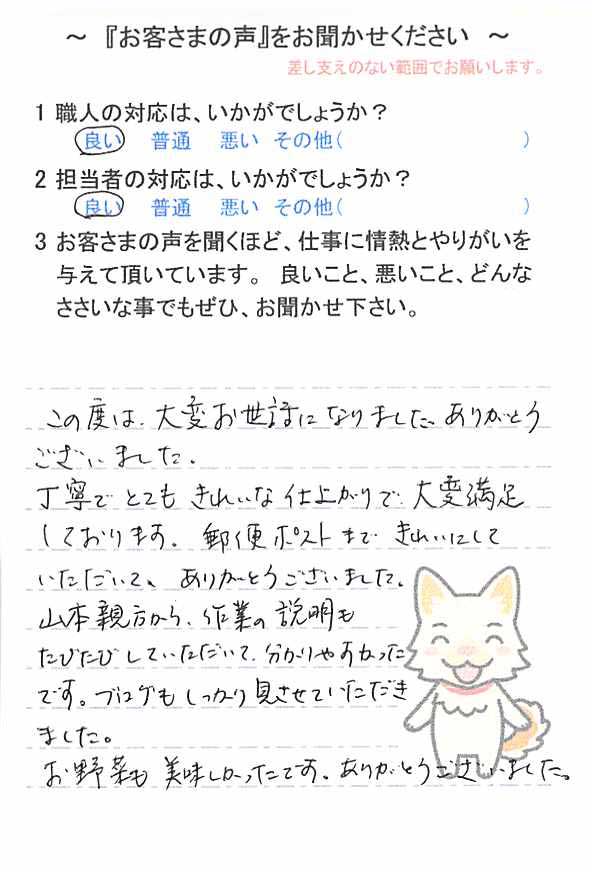 ～ 『お客さまの声』をお聞かせください ～
差し支えのない範囲でお願いします。
1 職人の対応は、いかがでしょうか？
良い 普通 悪い その他( )
2 担当者の対応は、いかがでしょうか？
良い 普通 悪い その他( )
3 お客さまの声を聞くほど、仕事に情熱とやりがいを
与えて頂いています。 良いこと、悪いこと、どんな
ささいな事でもぜひ、お聞かせ下さい。
この度は、大変お世話になりました。ありがとう
ございました。
丁寧でとてもきれいな仕上がりで大変満足
しております。郵便ポストまできれいにして
いただいて、ありがとうございました。
山本親方から、作業の説明も
たびたびしていただいて、分かりやすかった
です。ブログもしっかり見させていただき
ました。
お野菜も美味しかったです。ありがとうございました。